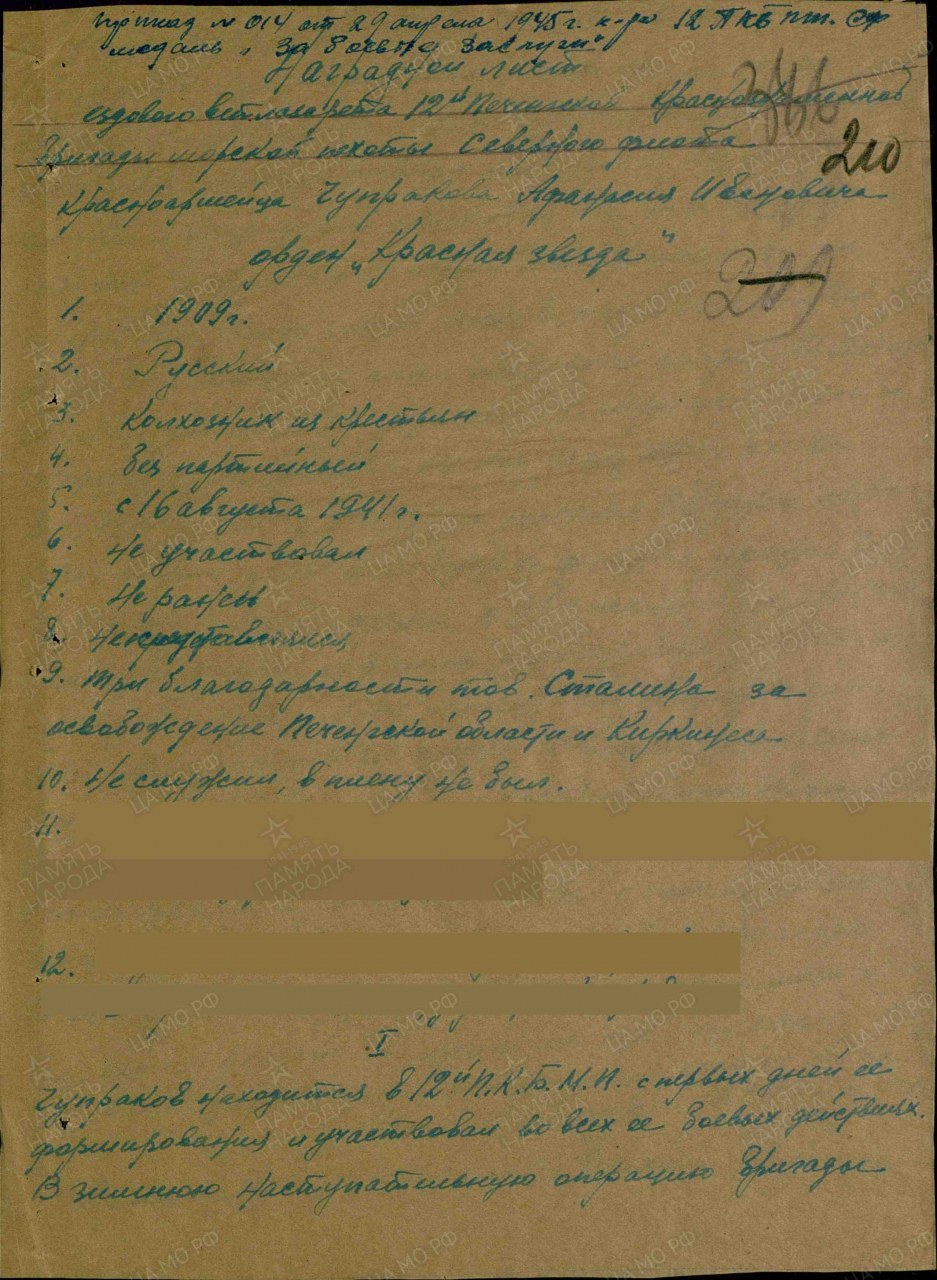 Приказ № 014 от 29 апреля 1945 г. к-ра 12 ПКБ пт. СФ
медаль "За боевые заслуги"
Наградной лист
ездового ветлазарета 12й Печенгской Краснознаменной
бригады морской пехоты Северного флота
210
Красноармейца Чупракова Афанасия Ивановича
орден "Красная звезда"
209
1. 1909 г.
2. Русский
3. Колхозник из крестьян
4. Без партийный
5. с 16 августа 1941 г.
6. Не участвовал
7. Не ранен
8. Не представлялся
9. Три благодарности тов. Сталина за
освобождение Печенгской области и Киркинеса
10. Не служил, в плену не был.
11.
12.
I
Чупраков находится в 12й П.К.Б.М.П. с первых дней ее
формирования и участвовал во всех ее боевых действиях.
В зимнюю наступательную операцию бригады